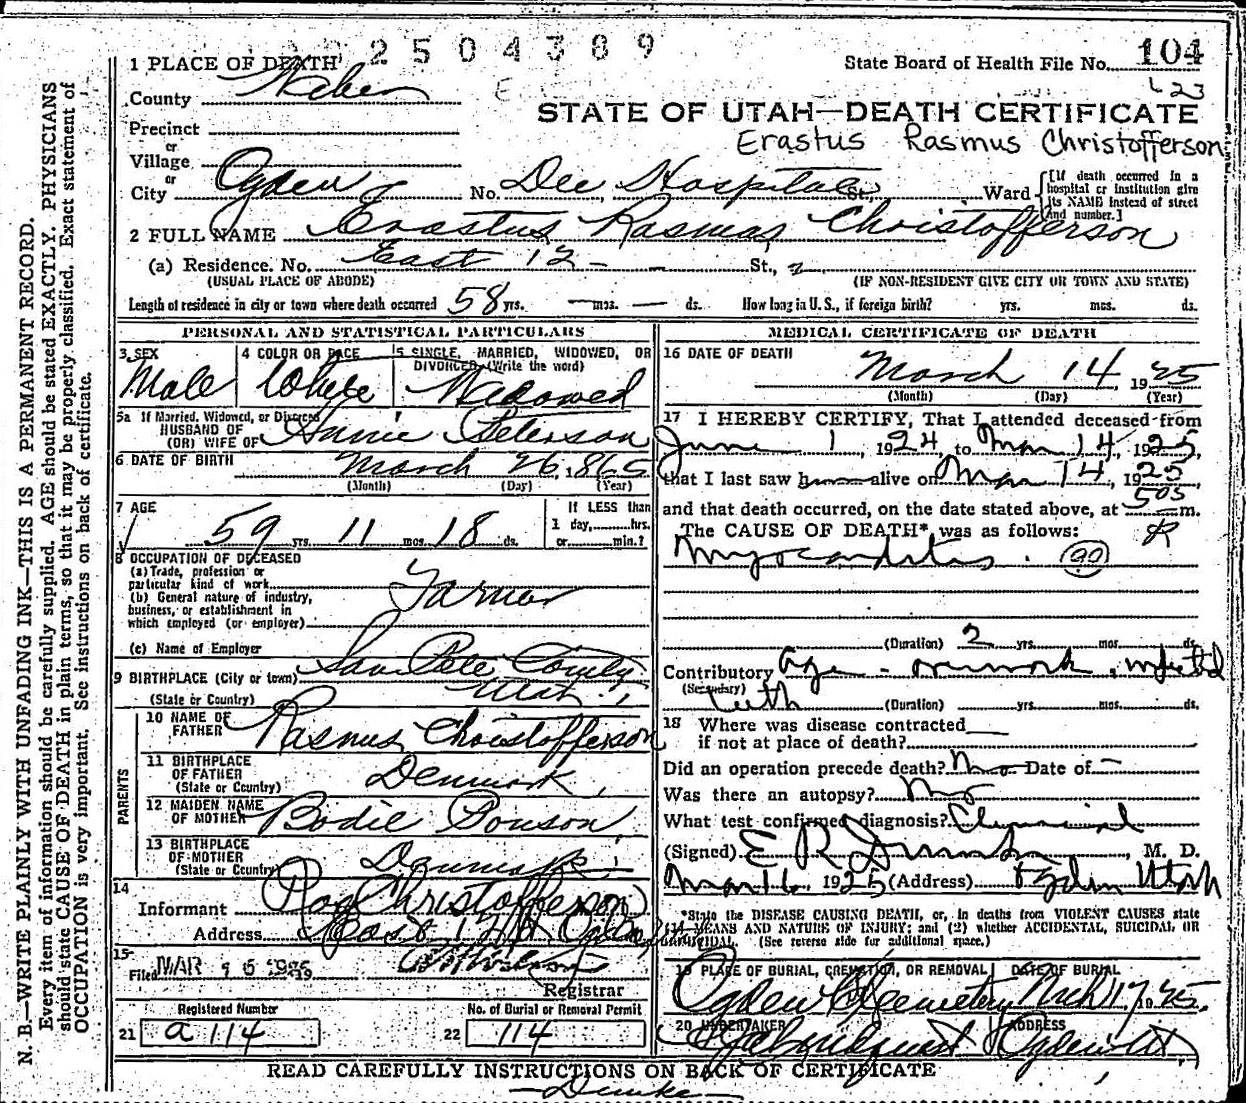 2504389
1 PLACE OF DEATH
State Board of Health File No. 104
County Weber
E
23
STATE OF UTAH—DEATH CERTIFICATE
Precinct
Erastus Rasmus Christofferson
or
Village
or
City Ogden No. Dee Hospital St., Ward
[If death occurred in a hospital or institution give its NAME instead of street and number.]
2 FULL NAME Erastus Rasmus Christofferson
(a) Residence. No. East 12 - - St., 2
(USUAL PLACE OF ABODE) (IF NON-RESIDENT GIVE CITY OR TOWN AND STATE)
Length of residence in city or town where death occurred 58 yrs. — mos. — ds. How long in U. S., if foreign birth? yrs. mos. ds.
PERSONAL AND STATISTICAL PARTICULARS
3 SEX
Male
4 COLOR OR RACE
White
5 SINGLE, MARRIED, WIDOWED, OR DIVORCED (Write the word)
Widowed
5a If Married, Widowed, or Divorced
HUSBAND OF
(OR) WIFE OF Annie Peterson
6 DATE OF BIRTH March 26, 1865
(Month) (Day) (Year)
7 AGE
59 yrs. 11 mos. 18 ds.
If LESS than
1 day, hrs.
or min.?
8 OCCUPATION OF DECEASED
(a) Trade, profession or
particular kind of work
Farmer
(b) General nature of industry,
business, or establishment in
which employed (or employer)
(c) Name of Employer
9 BIRTHPLACE (City or town) San Pete County
(State or Country) Utah
PARENTS
10 NAME OF FATHER Rasmus Christofferson
11 BIRTHPLACE OF FATHER
(State or Country) Denmark
12 MAIDEN NAME OF MOTHER Bodil
13 BIRTHPLACE OF MOTHER
(State or Country) Denmark
14
Informant Roy Christofferson
Address East 12 Ogden
15
Filed MAR 16 1925
Registrar
Registered Number
21 a 114
No. of Burial or Removal Permit
22 114
MEDICAL CERTIFICATE OF DEATH
16 DATE OF DEATH
March 14, 1925
(Month) (Day) (Year)
17 I HEREBY CERTIFY, That I attended deceased from
June 1, 1924, to Mar 14, 1925,
that I last saw h alive on Mar 14, 1925
and that death occurred, on the date stated above, at 505 m.
The CAUSE OF DEATH* was as follows:
Myocarditis. 90
(Duration) 2 yrs. mos. ds.
Contributory Age - overwork, infected
(Secondary) teeth (Duration) yrs. mos. ds.
18 Where was disease contracted
if not at place of death?
Did an operation precede death? No Date of —
Was there an autopsy? No
What test confirmed diagnosis? Clinical
(Signed) E R Dumke, M. D.
Mar 16, 1925 (Address) Ogden Utah
*State the DISEASE CAUSING DEATH, or, in deaths from VIOLENT CAUSES state
(1) MEANS AND NATURE OF INJURY; and (2) whether ACCIDENTAL, SUICIDAL OR
HOMICIDAL. (See reverse side for additional space.)
19 PLACE OF BURIAL, CREMATION, OR REMOVAL DATE OF BURIAL
Ogden Cemetery Mch 17 1925.
20 UNDERTAKER ADDRESS
Lindquist Ogden Ut
READ CAREFULLY INSTRUCTIONS ON BACK OF CERTIFICATE
—Dumke—
N. B.—WRITE PLAINLY WITH UNFADING INK—THIS IS A PERMANENT RECORD.
Every item of information should be carefully supplied. AGE should be stated EXACTLY. PHYSICIANS
should state CAUSE OF DEATH in plain terms, so that it may be properly classified. Exact statement of
OCCUPATION is very important. See instructions on back of certificate.